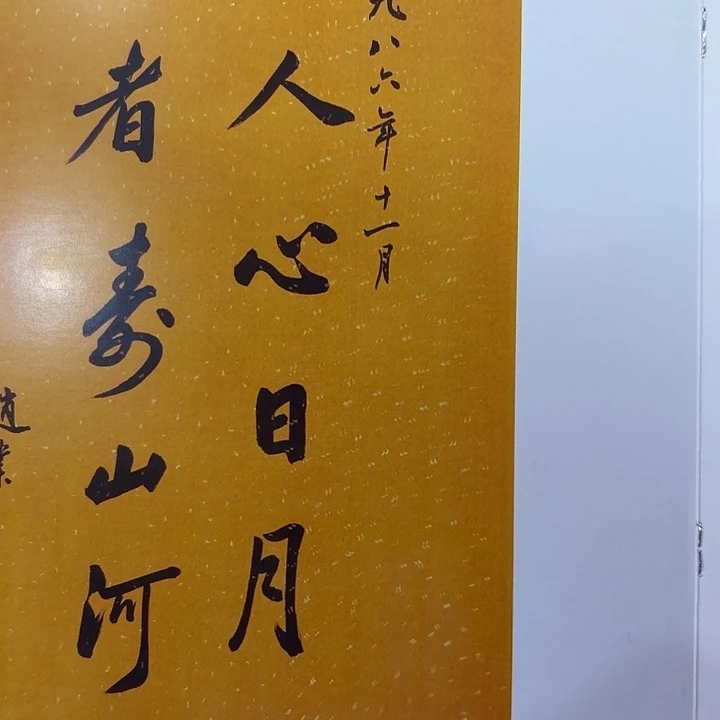 九八六年十一月
人心日月
者寿山河